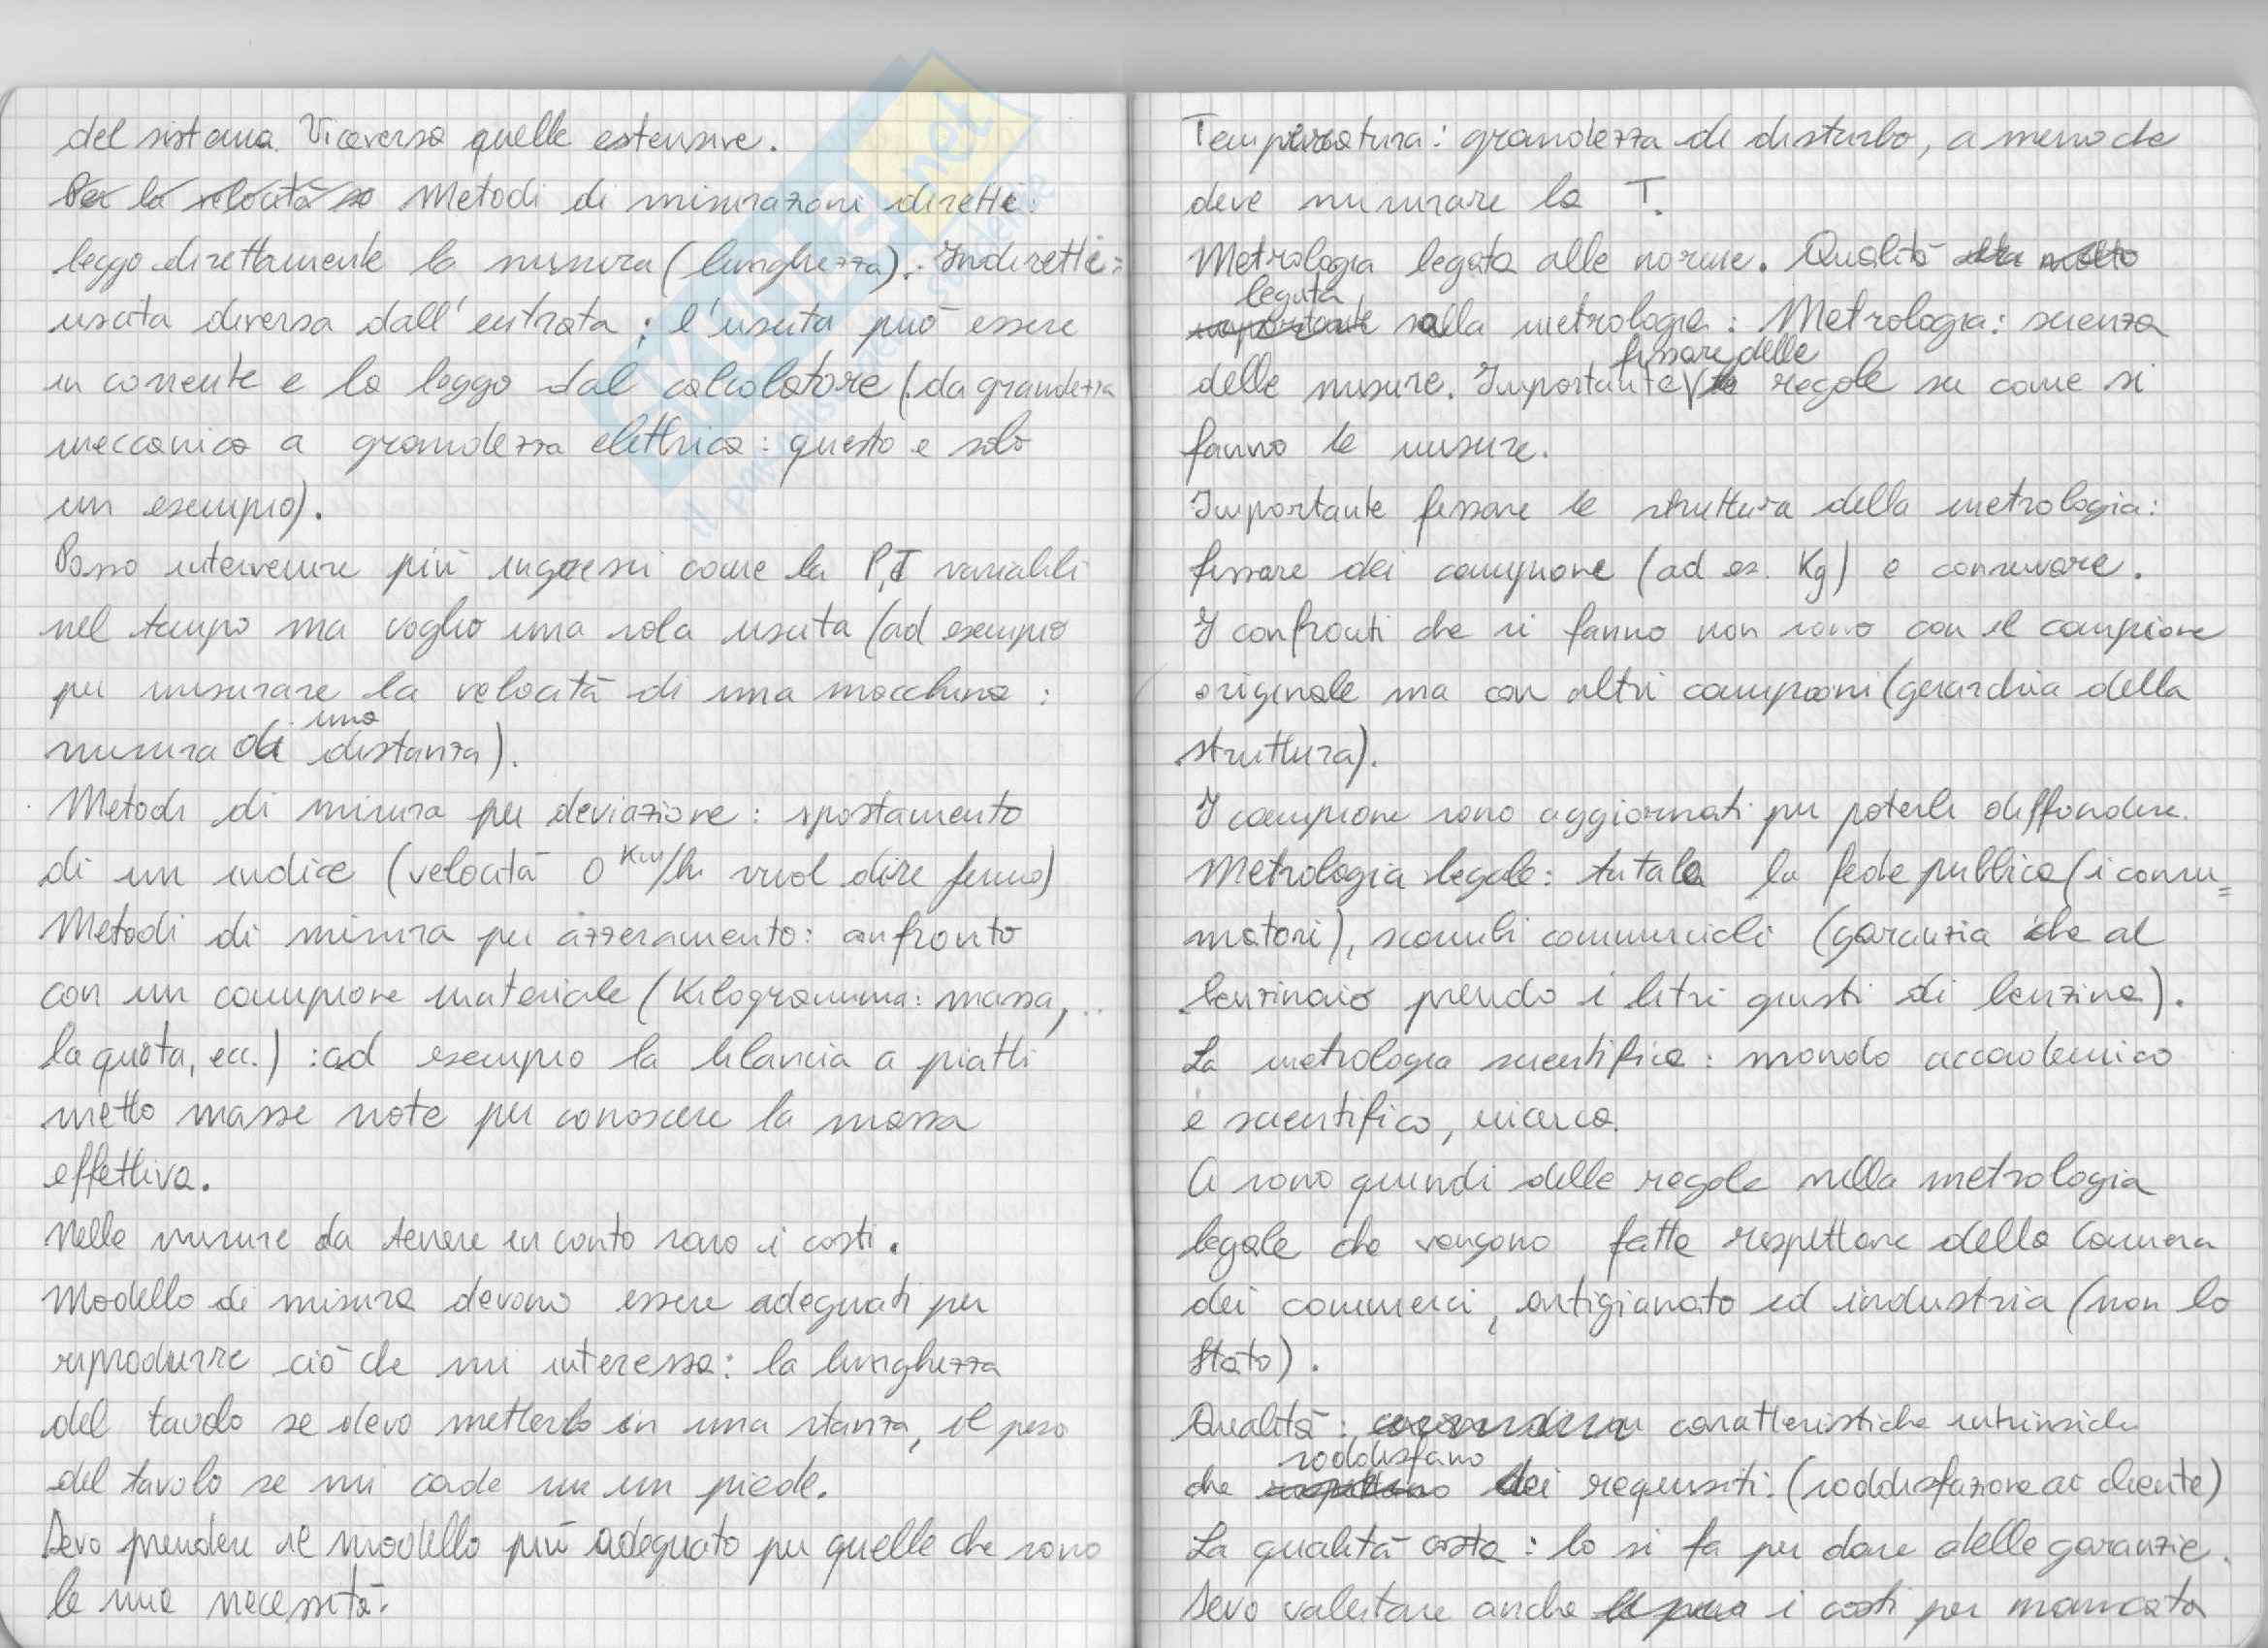 del sistema. Viceversa quelle estensive.
Per la velocità so Metodi di misurazioni diretti:
leggo direttamente la misura (lunghezza). Indiretti:
uscita diversa dall'entrata; l'uscita può essere
in corrente e la leggo dal calcolatore (da grandezza
meccanica a grandezza elettrica: questo e solo
un esempio).
Posso intervenire più ingressi come la P,T variabili
nel tempo ma voglio una sola uscita (ad esempio
per misurare la velocità di una macchina:
una
misura di distanza).
Metodi di misura per deviazione: spostamento
di un indice (velocità 0 Km/h vuol dire fermo)
Metodi di misura per azzeramento: confronto
con un campione materiale (Kilogramma: massa, ..
la quota, ecc.) : ad esempio la bilancia a piatti
metto masse note per conoscere la massa
effettiva.
Nelle misure da tenere in conto sono i costi.
Modello di misura devono essere adeguati per
riprodurre ciò che mi interessa: la lunghezza
del tavolo se devo metterlo in una stanza, il peso
del tavolo se mi cade su un piede.
Devo prendere il modello più adeguato per quelle che sono
le mie necessità.
Temperatura: grandezza di disturbo, a meno che
deve misurare la T.
Metrologia legata alle norme. Qualità molto
legata
importante alla metrologia: Metrologia: scienza
fissare delle
delle misure. Importante regole su come si
fanno le misure.
Importante fissare la struttura della metrologia:
fissare dei campione (ad es. Kg) e conservare.
I confronti che si fanno non sono con il campione
originale ma con altri campioni (gerarchia della
struttura).
I campione sono aggiornati per poterli diffondere.
Metrologia legale: tutela la fede pubblica (i consu=
matori), scambi commerciali (garanzia che al
benzinaio prendo i litri giusti di benzina).
La metrologia scientifica: mondo accademico
e scientifico, ricerca.
Ci sono quindi delle regole nella metrologia
legale che vengono fatte rispettare della Camera
dei commerci, artigianato ed industria (non lo
Stato).
Qualità: caratteristiche intrinsiche
soddisfano
che dei requisiti. (soddisfazione al cliente)
La qualità costa: lo si fa per dare delle garanzie.
Devo valutare anche i costi per mancata